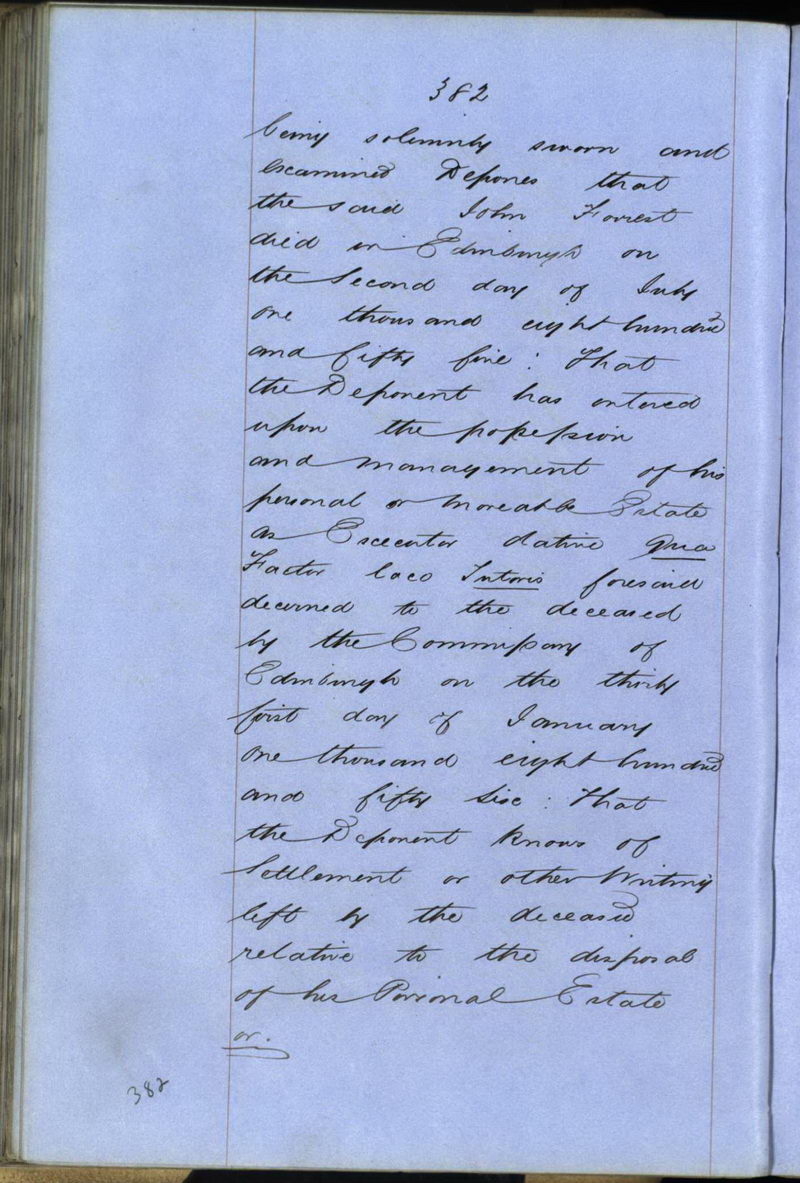 382
being solemnly sworn and
examined Depones that
the said John Forrest
died in Edinburgh on
the Second day of July
one thousand eight hundred
and fifty five : That
the Deponent has entered
upon the possession
and management of his
personal or Moveable Estate
as Executor dative Qua
Factor loco Tutoris foresaid
decerned to the deceased
by the Commissary of
Edinburgh on the thirty
first day of January
one thousand eight hundred
and fifty Six : That
the Deponent Knows of
Settlement or other Writing
left by the deceased
relative to the disposal
of his Personal Estate
or.
382